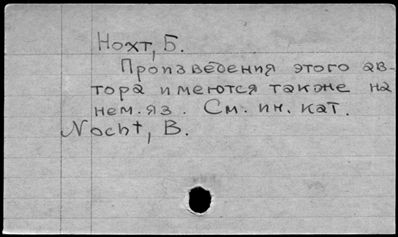 Нохт, Б.
Произведения этого ав-
тора имеются также на
нем. яз. См. ин. кат.
Nocht, B.